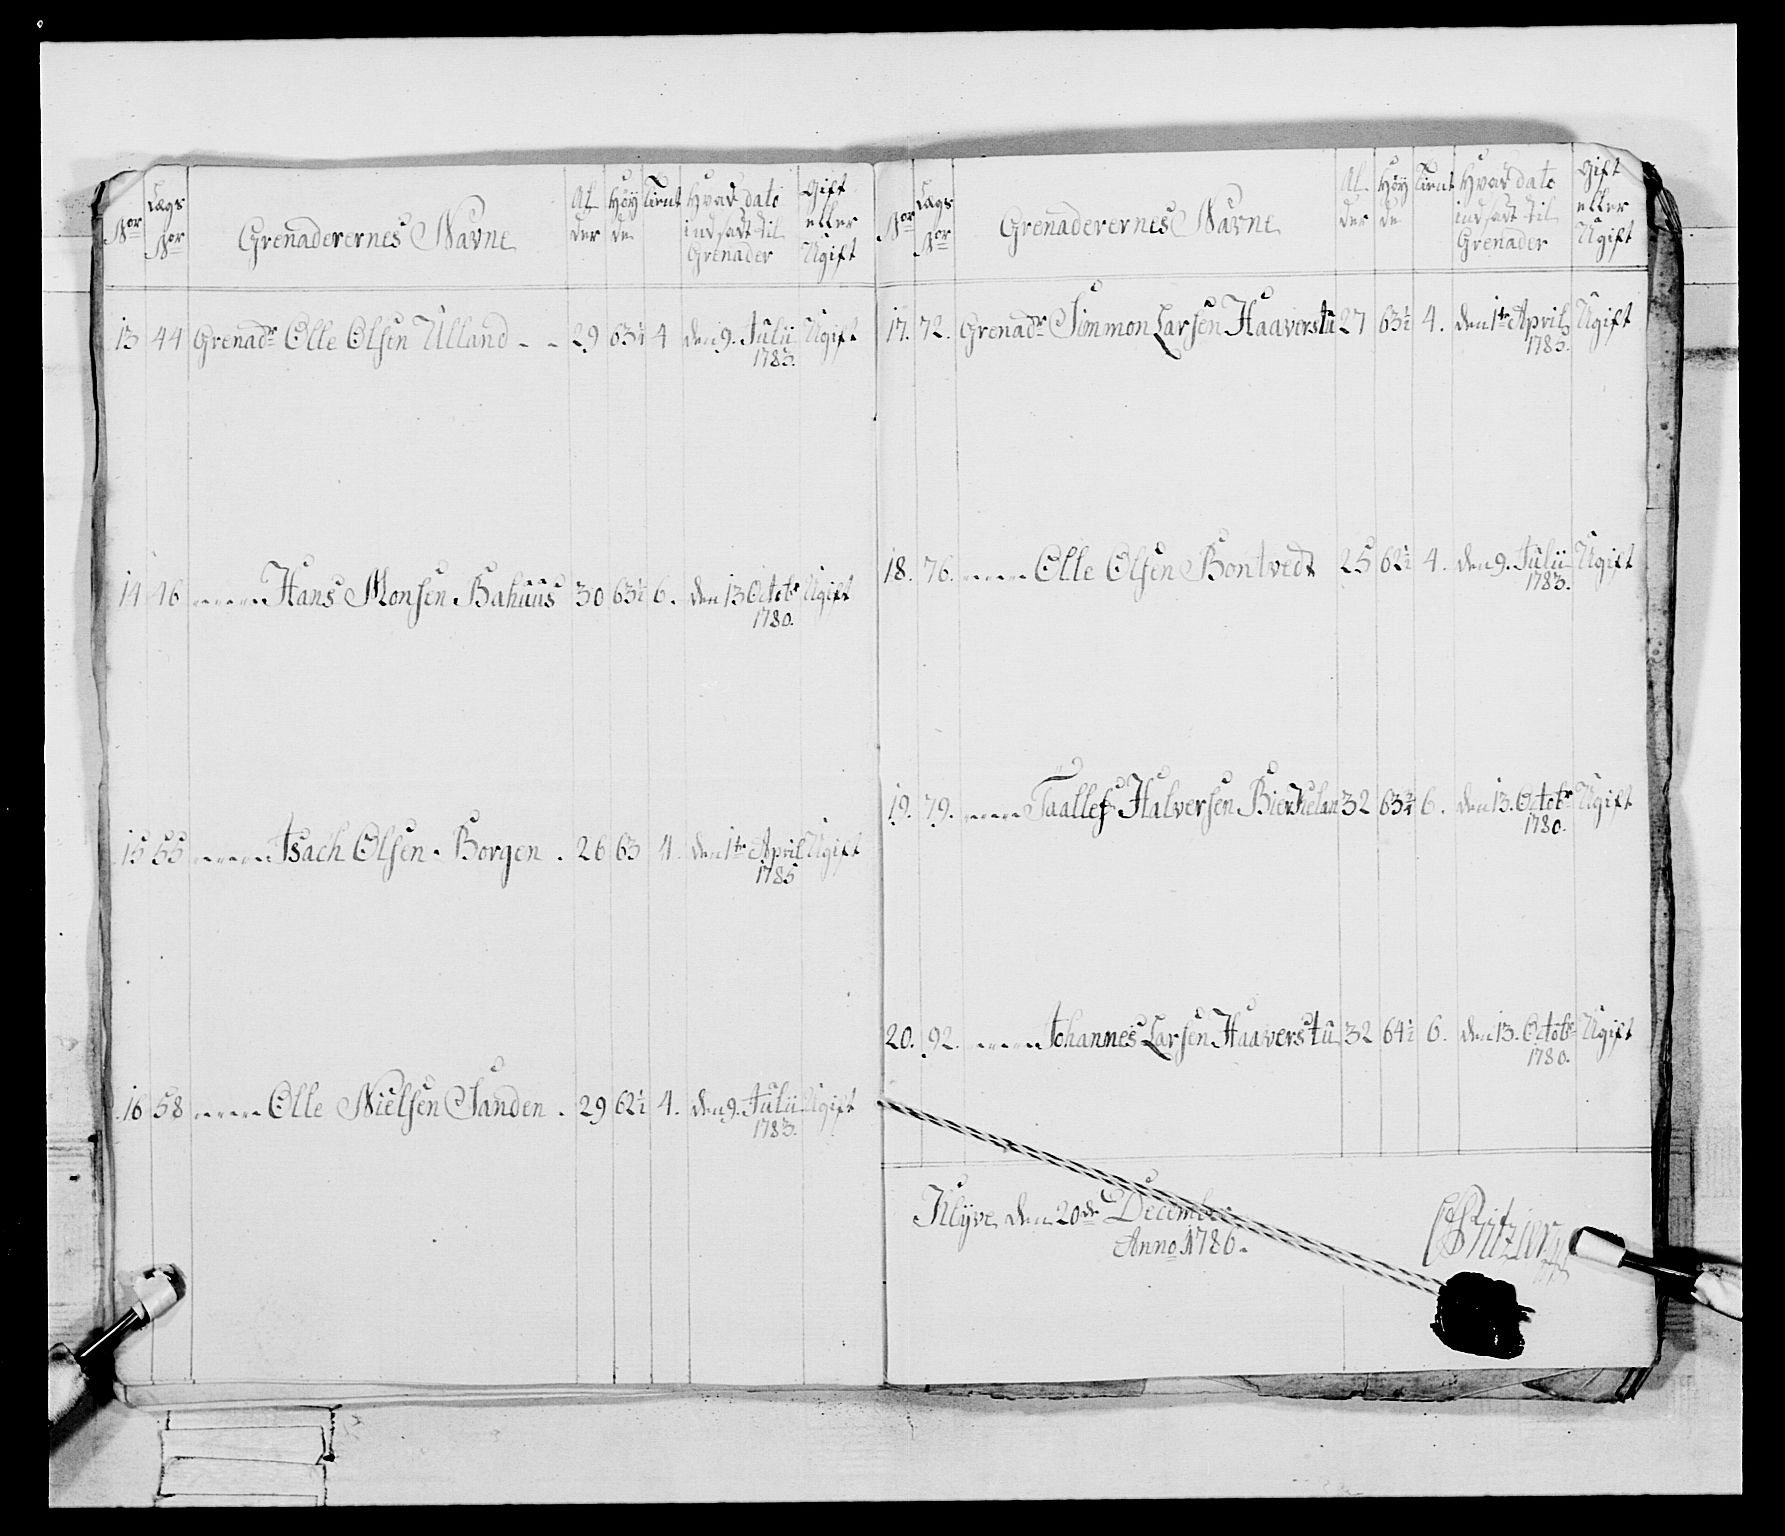 Nor Lægs Nor Grenaderernes Navne Al der Høy de Tient Hvad dato indsadt til Grenader Gift eller Ugift
13 44 Grenadr Olle Olsen Ulland - - 29 63½ 4 den 9. Julii 1783. Ugift
14 46 Hans Monsen Bahuus 30 63½ 6. den 13 Octobr 1780. Ugift
15 55 Isach Olsen Borgen. 26 63 4. den 1te April 1785 Ugift
16 58 Olle Nielsen Sanden. 29 62½ 4. den 9. Julii 1783. Ugift
Nor Lægs Nor Grenaderernes Navne Al der Høy de Tient Hvad dato indsadt til Grenader Gift eller Ugift
17. 72. Grenadr Simmon Larsen Haaverstu 27 63½ 4. den 1te April 1783. Ugift
18. 76. Olle Olsen Bontvedt 25 62½ 4. den 9. Julii 1783. Ugift
19. 79. Taallef Halversen 32 63¾ 6. den 13. Octobr 1780. Ugift
20. 92. Johannes Larsen Haaverstu 32 64½ 6. den 13. Octobr 1780. Ugift
Klyve den 20de December
Anno 1786.